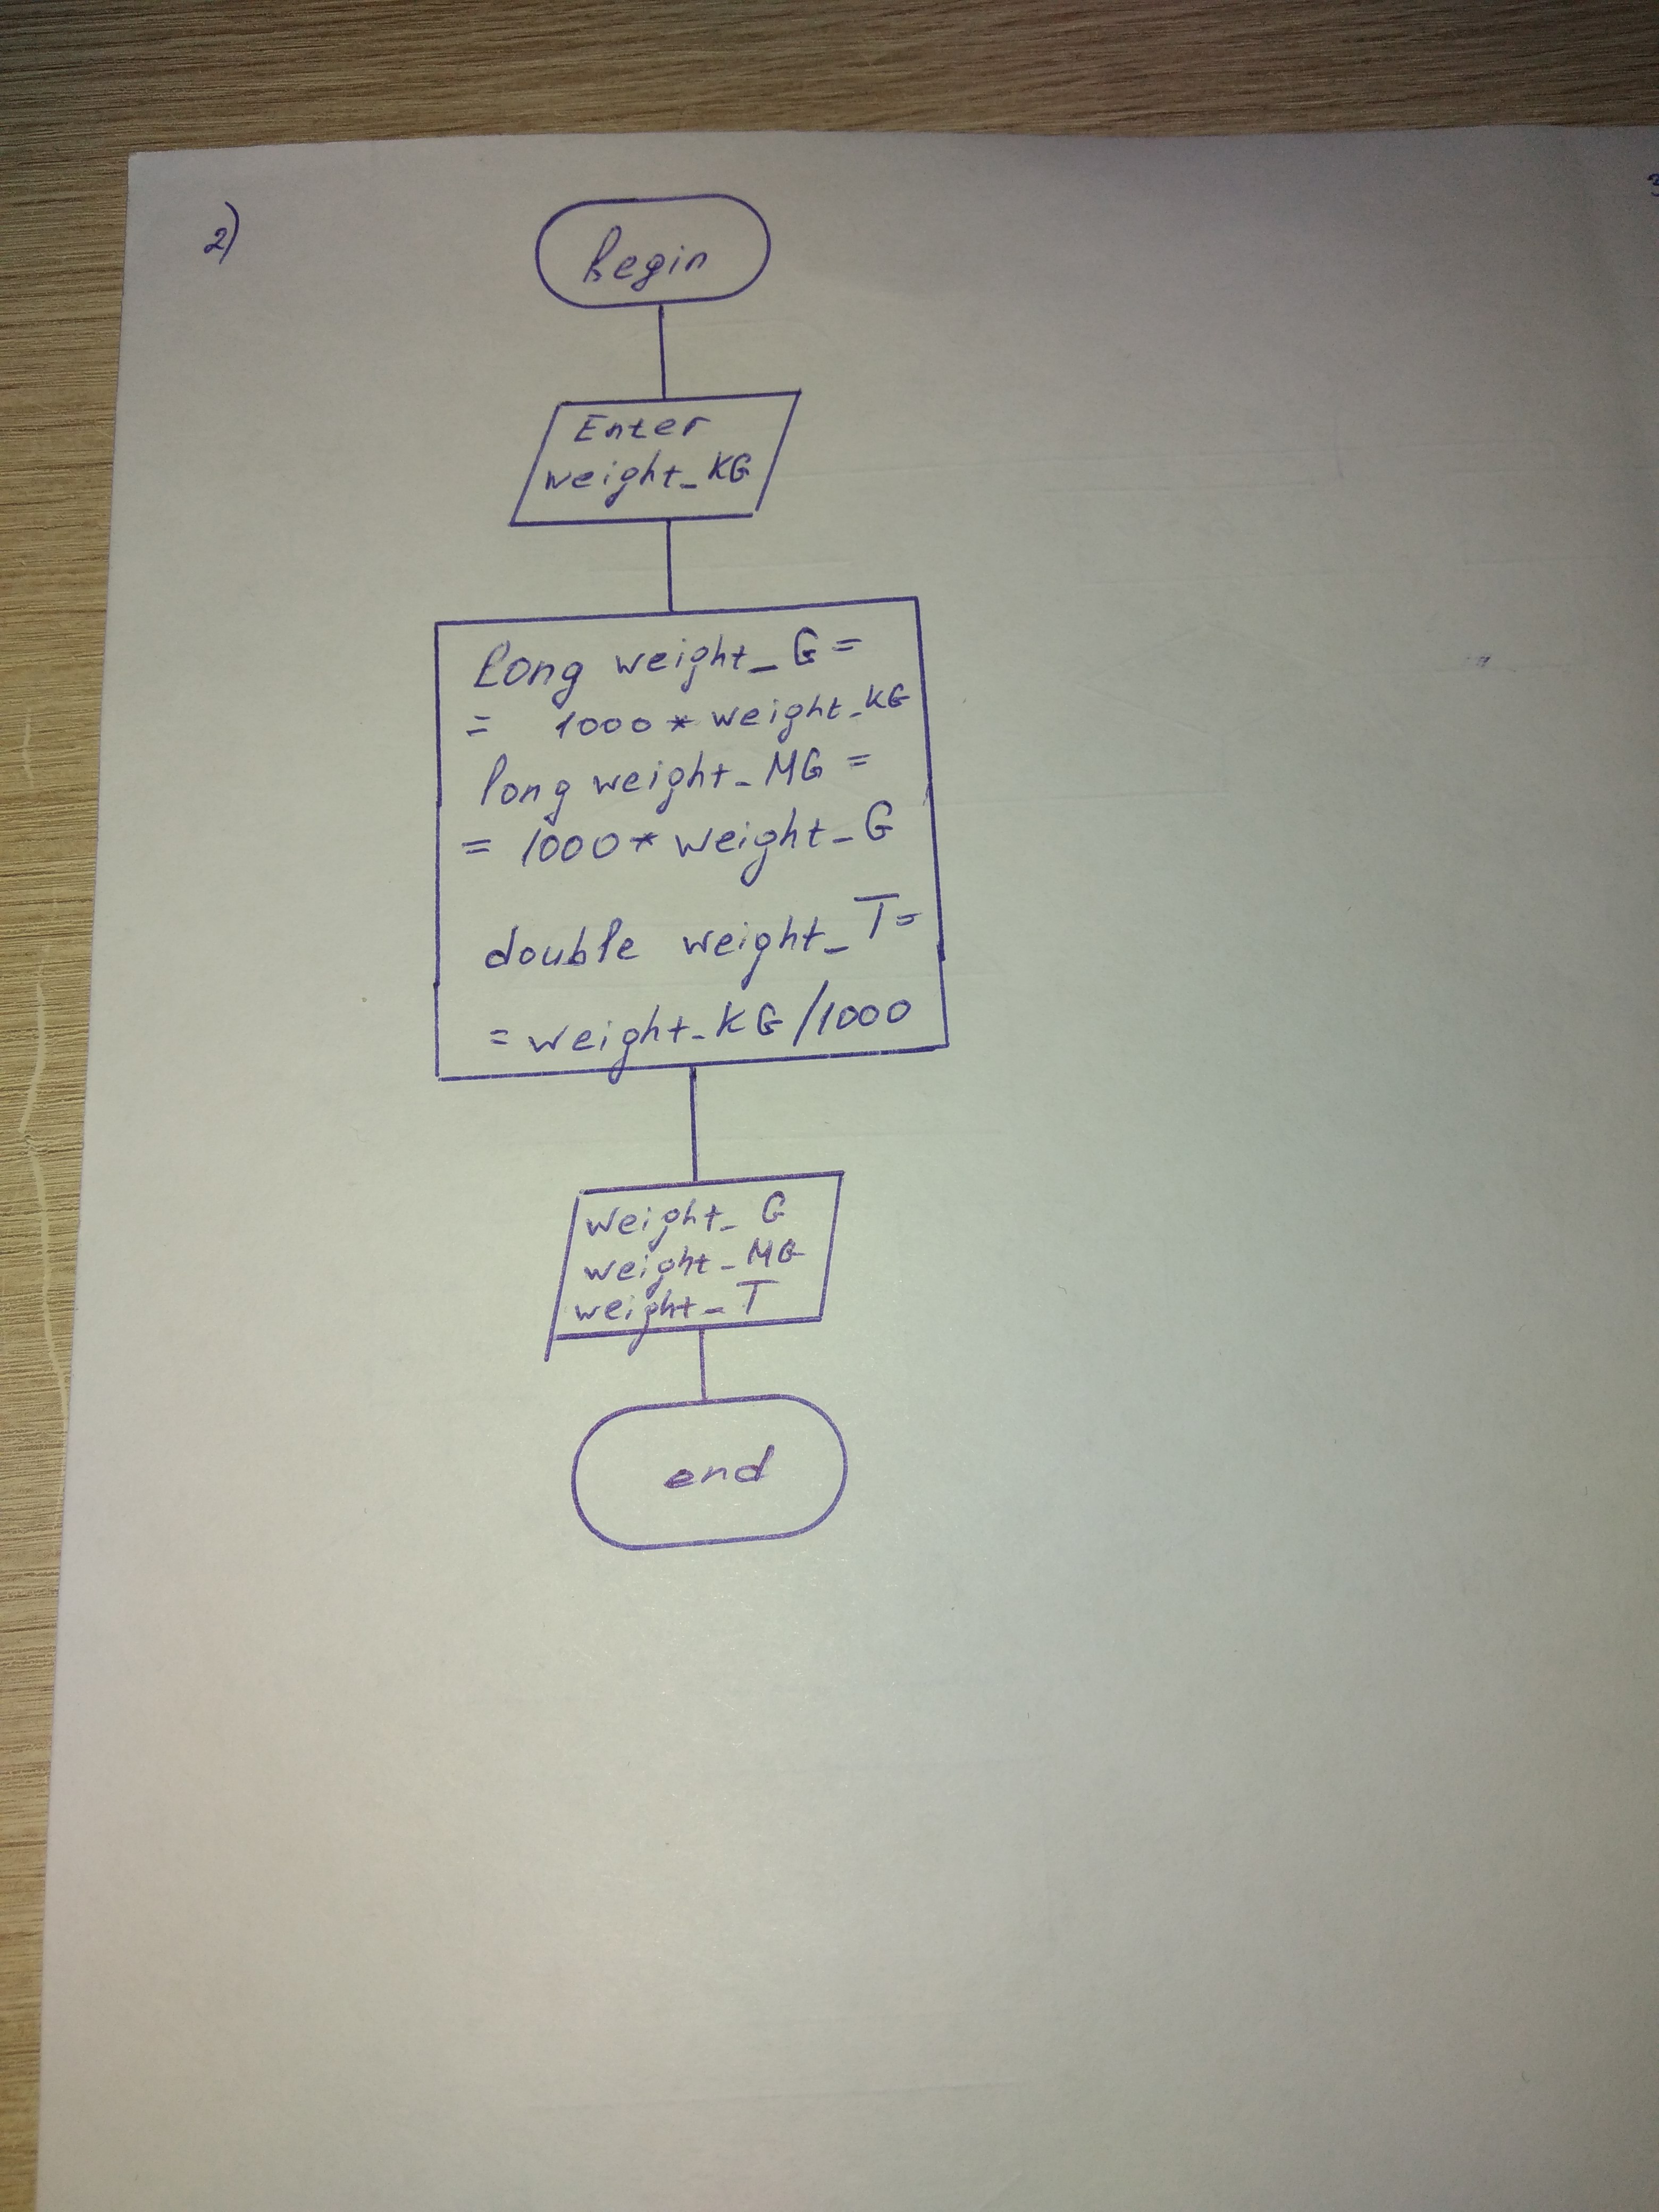 2)
begin
Enter
weight_KG
long weight_G =
= 1000 * weight_KG
long weight_MG =
= 1000 * weight_G
double weight_T=
= weight_KG/1000
weight_G
weight_MG
weight_T
end